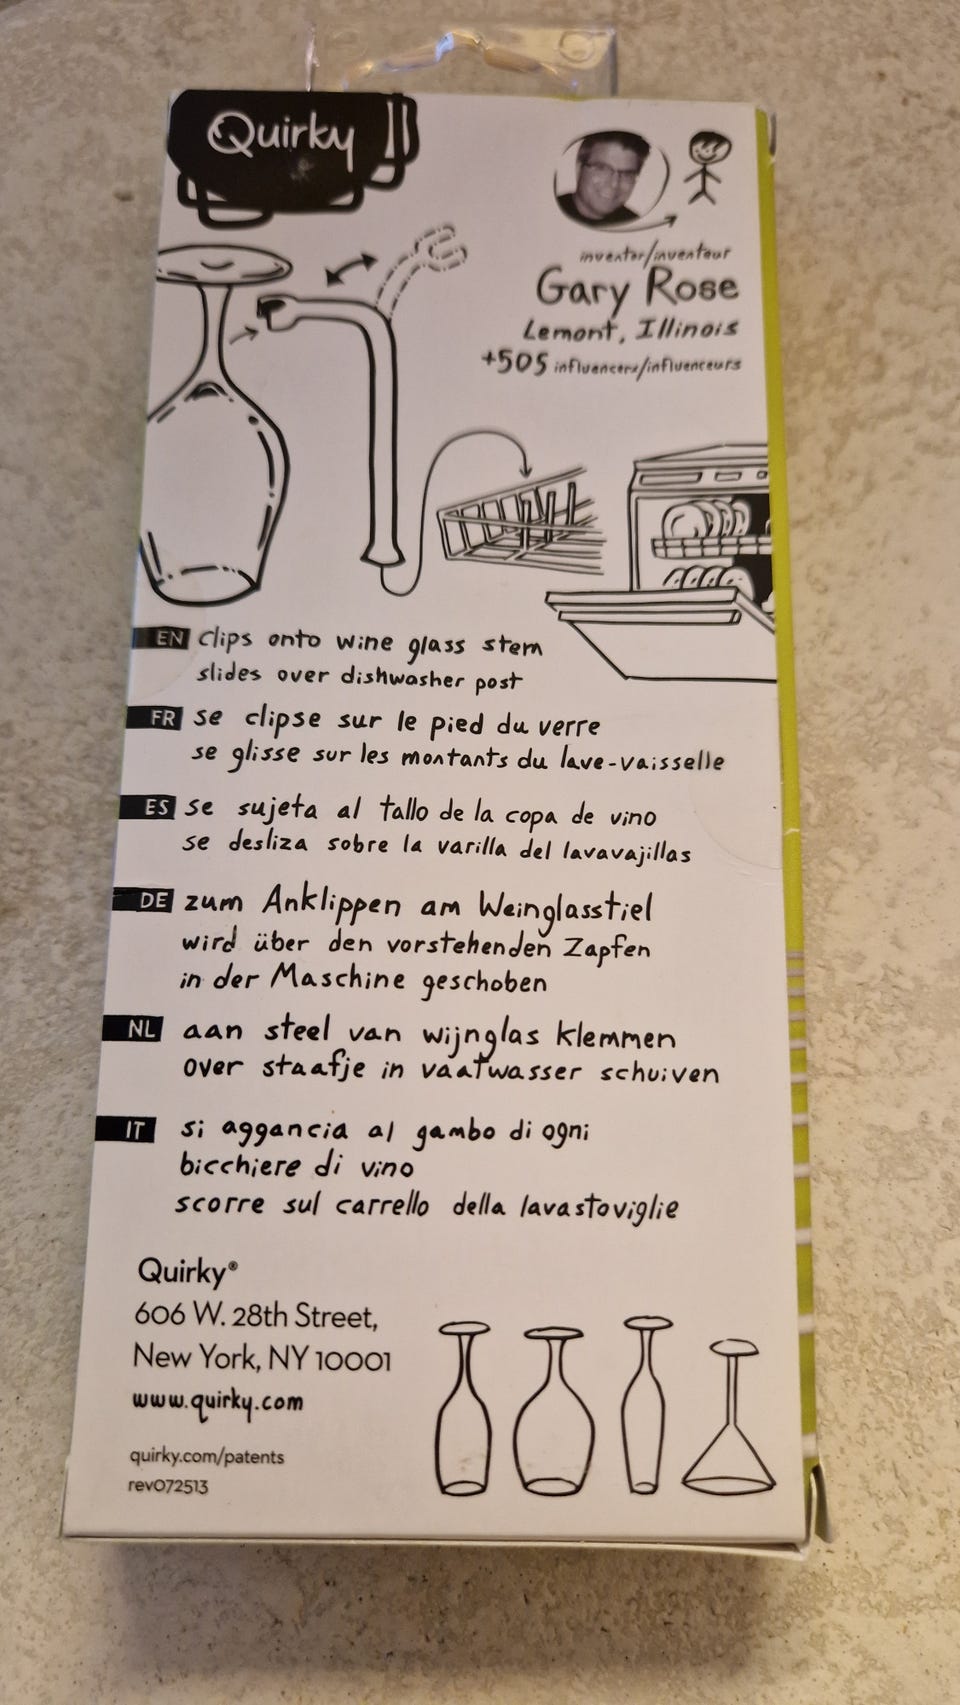 Quirky
inventor/inventeur
Gary Rose
Lemont, Illinois
+505 influencers/influenceurs
EN clips onto wine glass stem
slides over dishwasher post
FR se clipse sur le pied du verre
se glisse sur les montants du lave-vaisselle
ES se sujeta al tallo de la copa de vino
se desliza sobre la varilla del lavavajillas
DE zum Anklippen am Weinglasstiel
wird über den vorstehenden Zapfen
in der Maschine geschoben
NL aan steel van wijnglas klemmen
over staafje in vaatwasser schuiven
IT si aggancia al gambo di ogni
bicchiere di vino
scorre sul carrello della lavastoviglie
Quirky®
606 W. 28th Street,
New York, NY 10001
www.quirky.com
quirky.com/patents
rev072513